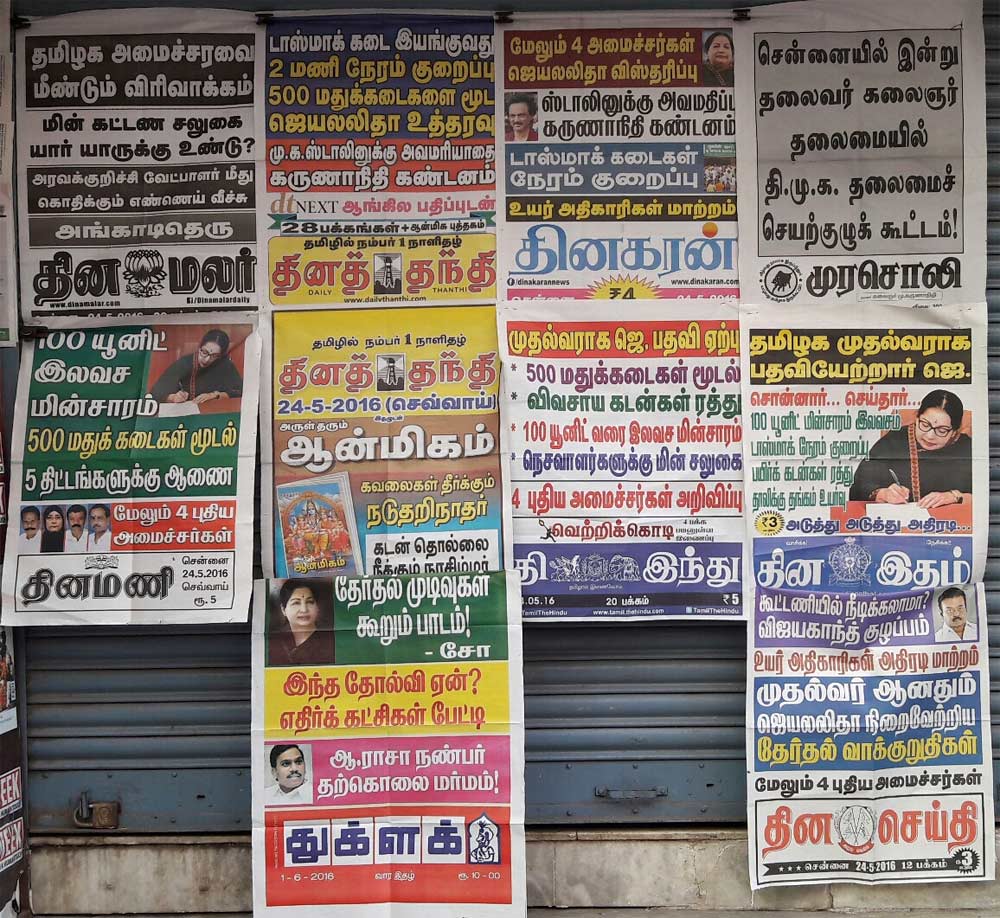 தமிழக அமைச்சரவை
மீண்டும் விரிவாக்கம்
மின் கட்டண சலுகை
யார் யாருக்கு உண்டு?
அரவக்குறிச்சி வேட்பாளர் மீது
கொதிக்கும் எண்ணெய் வீச்சு
அங்காடிதெரு
தின மலர்
www.dinamalar.com
/Dinamalardaily
டாஸ்மாக் கடை இயங்குவது
2 மணி நேரம் குறைப்பு
500 மதுக்கடைகளை மூட
ஜெயலலிதா உத்தரவு
மு.க.ஸ்டாலினுக்கு அவமரியாதை
கருணாநிதி கண்டனம்
dt NEXT ஆங்கில பதிப்புடன்
28 பக்கங்கள் + ஆன்மிக புத்தகம்
தமிழில் நம்பர் 1 நாளிதழ்
தினத் தந்தி
DAILY THANTHI
www.dailythanthi.com
மேலும் 4 அமைச்சர்கள்
ஜெயலலிதா விஸ்தரிப்பு
ஸ்டாலினுக்கு அவமதிப்பு
கருணாநிதி கண்டனம்
டாஸ்மாக் கடைகள்
நேரம் குறைப்பு
உயர் அதிகாரிகள் மாற்றம்
தினகரன்
/dinakarannews www.dinakaran.com
சென்னை ₹4 24-5-2016
சென்னையில் இன்று
தலைவர் கலைஞர்
தலைமையில்
தி.மு.க. தலைமைச்
செயற்குழுக் கூட்டம்!
முரசொலி
100 யூனிட்
இலவச
மின்சாரம்
500 மதுக் கடைகள் மூடல்
5 திட்டங்களுக்கு ஆணை
மேலும் 4 புதிய
அமைச்சர்கள்
தினமணி
சென்னை
24.5.2016
செவ்வாய்
ரூ. 5
தமிழில் நம்பர் 1 நாளிதழ்
தினத் தந்தி
24-5-2016 (செவ்வாய்)
இதழுடன்
அருள் தரும்
ஆன்மிகம்
கவலைகள் தீர்க்கும்
நடுதறிநாதர்
ஆன்மிகம்
கடன் தொல்லை
நீக்கும் நரசிம்மர்
முதல்வராக ஜெ, பதவி ஏற்பு
* 500 மதுக்கடைகள் மூடல்
* விவசாய கடன்கள் ரத்து
* 100 யூனிட் வரை இலவச மின்சாரம்
* நெசவாளர்களுக்கு மின் சலுகை
4 புதிய அமைச்சர்கள் அறிவிப்பு
வெற்றிக்கொடி
4 பக்க
இணைப்பு
தி இந்து
.05.16 20 பக்கம் ₹5
TamilTheHindu www.tamil.thehindu.com TamilTheHindu
தமிழக முதல்வராக
பதவியேற்றார் ஜெ.
சொன்னார்... செய்தார்...
100 யூனிட் மின்சாரம் இலவசம்
டாஸ்மாக் நேரம் குறைப்பு
பயிர்க் கடன்கள் ரத்து
தாலிக்கு தங்கம் உயர்வு
₹3 அடுத்து அடுத்து அதிரடி...
தின இதழ்
தேர்தல் முடிவுகள்
கூறும் பாடம்!
- சோ
இந்த தோல்வி ஏன்?
எதிர்க் கட்சிகள் பேட்டி
ஆ.ராசா நண்பர்
தற்கொலை மர்மம்!
துக்ளக்
1-6-2016 வார இதழ் ரூ. 10-00
கூட்டணியில் நீடிக்கலாமா?
விஜயகாந்த் குழப்பம்
உயர் அதிகாரிகள் அதிரடி மாற்றம்
முதல்வர் ஆனதும்
ஜெயலலிதா நிறைவேற்றிய
தேர்தல் வாக்குறுதிகள்
மேலும் 4 புதிய அமைச்சர்கள்
தின செய்தி
★★★ சென்னை 24-5-2016 12 பக்கம் ரூ.3